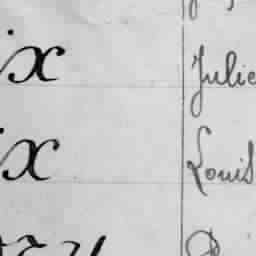 ix Julie
ix Louis